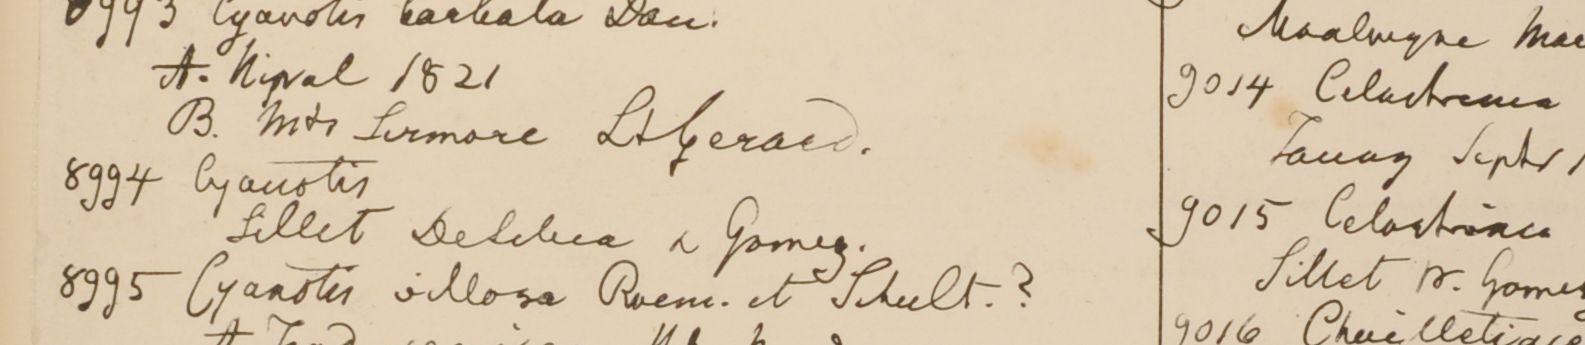 8993 Cyanotis barbata Don.
A. Nipal 1821
B. Mts Sirmore Lt Gerard.
8994 Cyanotis
Sillet DeSilva & Gomez.
8995 Cyanotis villosa Roem. et Schult.?
9014 Celastrinea
Septr
9015 Celastrinea
Sillet W. Gomez
9016